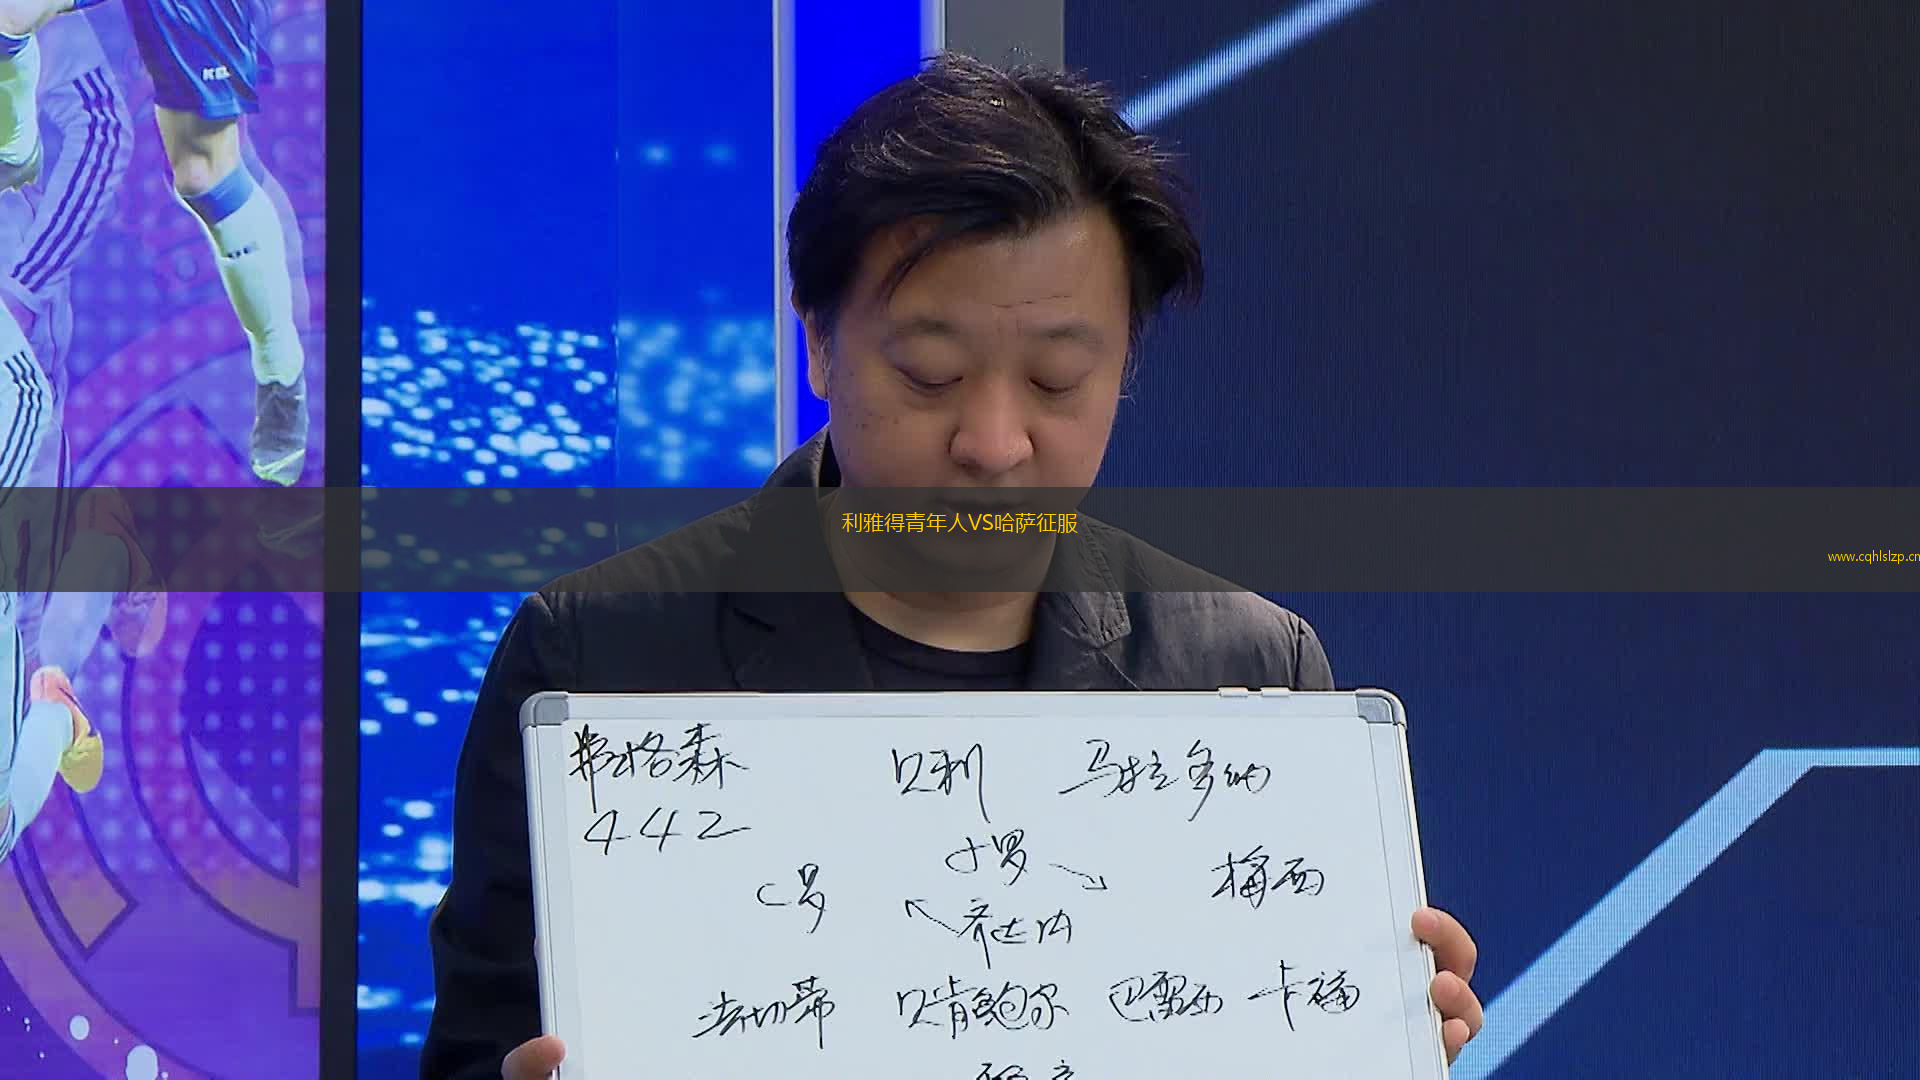 利雅得青年人VS哈萨征服
www.cqhlslzp.cn
弗格森 贝利 马拉多纳
442
小罗
C罗 梅西
齐达内
法切蒂 贝肯鲍尔 巴雷西 卡福